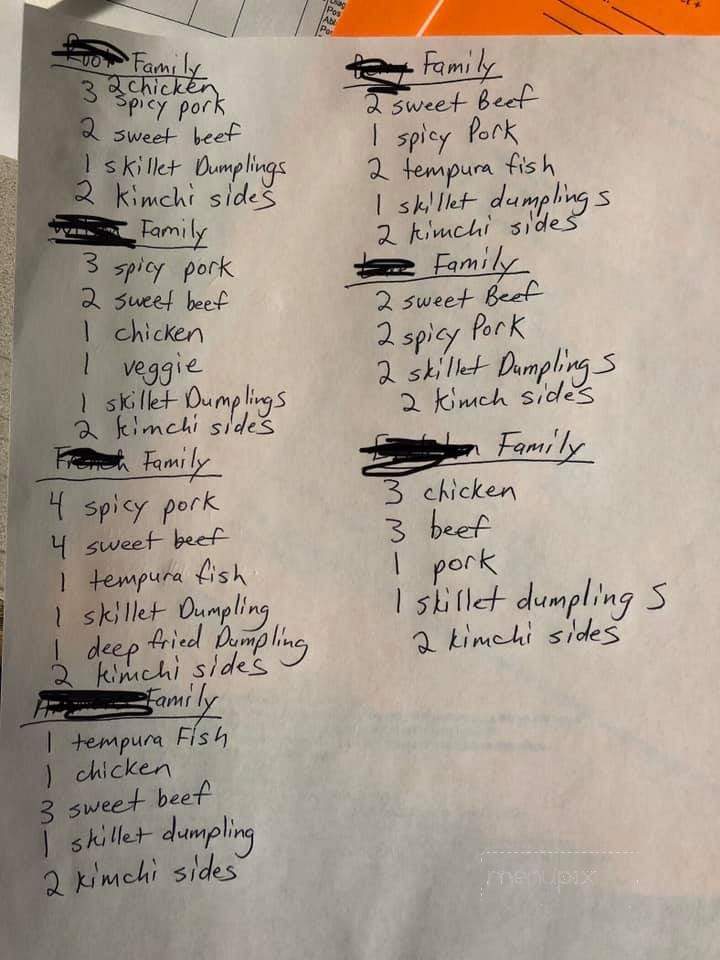 Family
2 chicken
3 spicy pork
2 sweet beef
1 skillet Dumplings
2 kimchi sides
Family
3 spicy pork
2 sweet beef
1 chicken
1 veggie
1 skillet Dumplings
2 kimchi sides
Family
4 spicy pork
4 sweet beef
1 tempura fish
1 skillet Dumpling
1 deep fried Dumpling
2 kimchi sides
Family
1 tempura Fish
1 chicken
3 sweet beef
1 skillet dumpling
2 kimchi sides
Family
2 sweet Beef
1 spicy Pork
2 tempura fish
1 skillet dumplings
2 kimchi sides
Family
2 sweet Beef
2 spicy Pork
2 skillet Dumplings
2 kimch sides
Family
3 chicken
3 beef
1 pork
1 skillet dumplings
2 kimchi sides
menupix